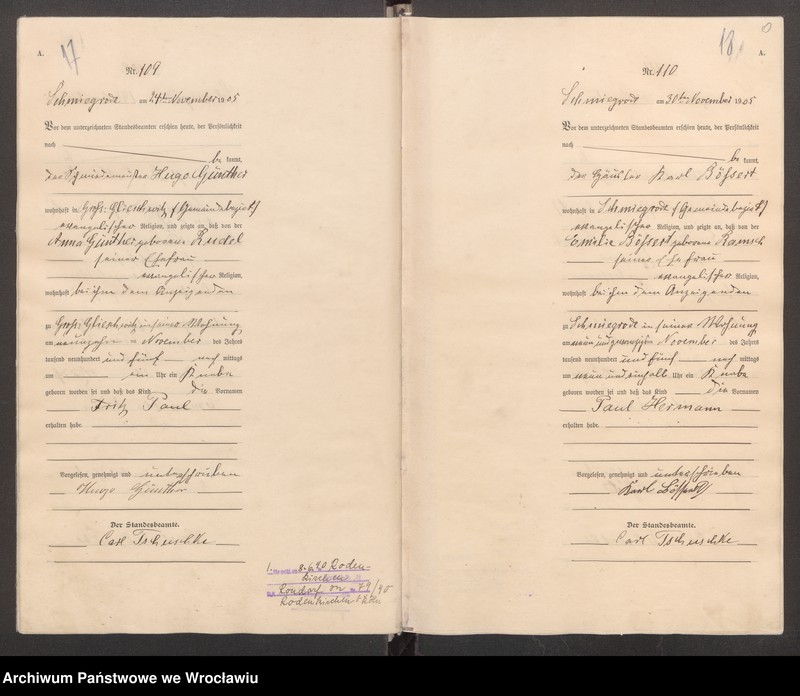 17
A.
Nr. 109
Schmiegrode am 24ten November 1905
Vor dem unterzeichneten Standesbeamten erschien heute, der Persönlichkeit
nach
be kannt,
der Schmiedemeister Hugo Günther
wohnhaft in Groß-Glieschwitz (Gemeindebezirk)
evangelischer Religion, und zeigte an, daß von der
Anna Günther geborene Rudel
seiner Ehefrau
evangelischer Religion,
wohnhaft bei ihm dem Anzeigenden
zu Groß-Glieschwitz in seiner Wohnung
am neunzehnten November des Jahres
tausend neunhundert und fünf nach mittags
um ein Uhr ein Knabe
geboren worden sei und daß das Kind die Vornamen
Fritz Paul
erhalten habe.
Vorgelesen, genehmigt und unterschrieben
Hugo Günther
Der Standesbeamte.
Carl Tschuschke
1. 8.6.40 Roden-
kirchen
Rondorf 79/40
Rodenkirchen
18
A.
Nr. 110
Schmiegrode am 30ten November 1905
Vor dem unterzeichneten Standesbeamten erschien heute, der Persönlichkeit
nach
be kannt,
der Häusler Karl Bössert
wohnhaft in Schmiegrode (Gemeindebezirk)
evangelischer Religion, und zeigte an, daß von der
Emilie Bössert geborene Ramsch
seiner Ehefrau
evangelischer Religion,
wohnhaft bei ihm dem Anzeigenden
zu Schmiegrode in seiner Wohnung
am neunundzwanzigsten November des Jahres
tausend neunhundert und fünf nach mittags
um neun und einhalb Uhr ein Knabe
geboren worden sei und daß das Kind die Vornamen
Paul Hermann
erhalten habe.
Vorgelesen, genehmigt und unterschrieben
Karl Bössert
Der Standesbeamte.
Carl Tschuschke
Archiwum Państwowe we Wrocławiu